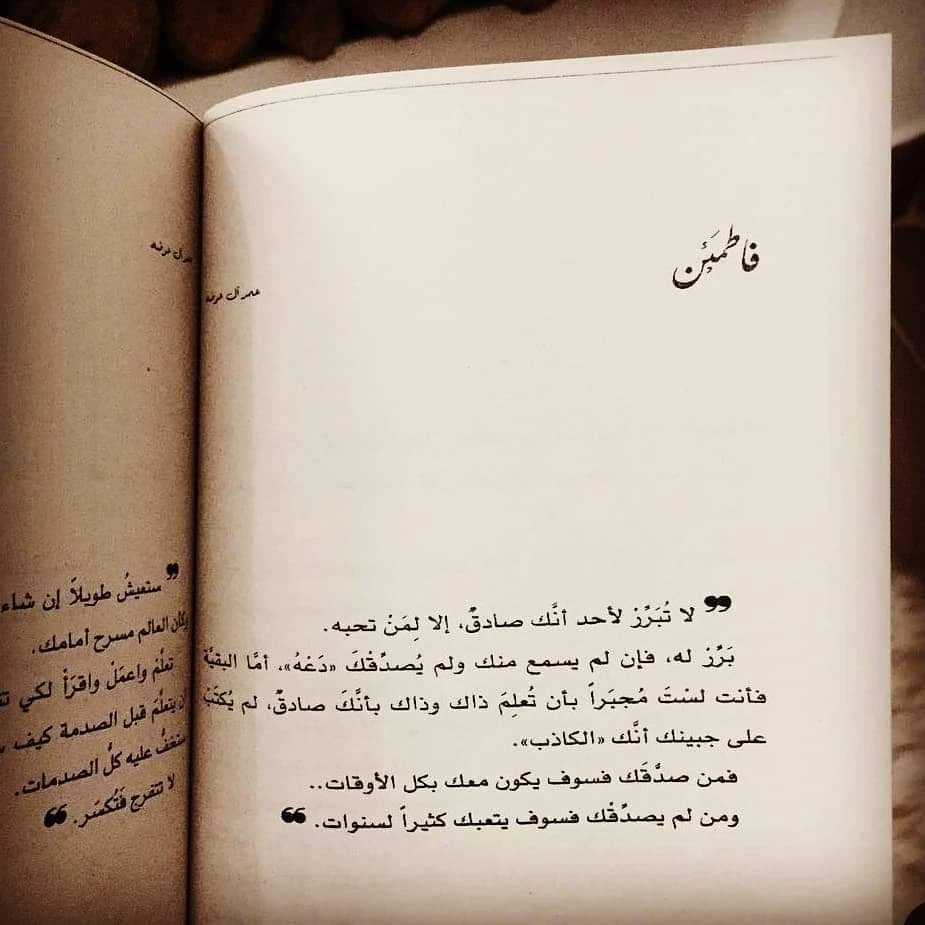 فاطمَئن
عمر آل عوضه
❞ لا تُبَرِّرْ لأحد أنَّك صادقٌ، إلا لِمَنْ تحبه.
بَرِّرْ له، فإن لم يسمع منك ولم يُصدِّقْكَ «دَعْهُ»، أمَّا البقيَّة
فأنت لسْتَ مُجبَراً بأن تُعلِمَ ذاك وذاك بأنَّكَ صادقٌ، لم يُكتَبْ
على جبينك أنَّك «الكاذب».
فمن صدَّقَك فسوف يكون معك بكل الأوقات..
ومن لم يصدِّقْك فسوف يتعبك كثيراً لسنوات. ❝
❞ ستعيشُ طويلاً إن شاء
وكأن العالم مسرح أمامك.
تعلَّمْ واعملْ واقرأْ لكي
يتعلَّمَ قبل الصدمة كيف
عليه كلُّ الصدمات.
لا تتفرج فَتُكسَر. ❝